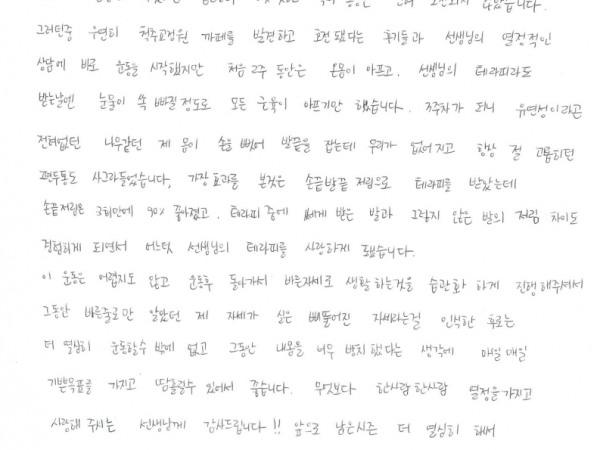 그러던중 우연히 척추교정원 까페를 발견하고 호전됐다는 후기들과 선생님의 열정적인
상담에 바로 운동을 시작했지만 처음 2주 동안은 온몸이 아프고, 선생님의 테라피라도
받는날엔 눈물이 쏙 빠질 정도로 모든 근육이 아프기만 했습니다. 3주차가 되니 유연성이라곤
전혀없던 나무같던 제 몸이 손을 뻗어 발끝을 잡는데 무리가 없어지고 항상 절 괴롭히던
편두통도 사그라들었습니다, 가장 효과를 본것은 손끝발끝 저림으로 테라피를 받았는데
손끝저림은 3회만에 90% 좋아졌고, 테라피 중에 쎄게 받은 발과 그렇지 않은 발의 저림 차이도
경험하게 되면서 어느덧 선생님의 테라피를 사랑하게 됐습니다.
이 운동은 어렵지도 않고 운동후 돌아가서 바른자세로 생활하는것을 습관화 하게 진행해주셔서
그동안 바른줄로만 알았던 제 자세가 실은 삐뚤어진 자세라는걸 인식한 후로는
더 열심히 운동할수 밖에 없고 그동안 내몸을 너무 방치했다는 생각에 매일매일
기쁜목표를 가지고 땀흘릴수 있어서 좋습니다. 무엇보다 한사람한사람 열정을가지고
사랑해 주시는 선생님께 감사드립니다!! 앞으로 남은시즌 더 열심히 해서